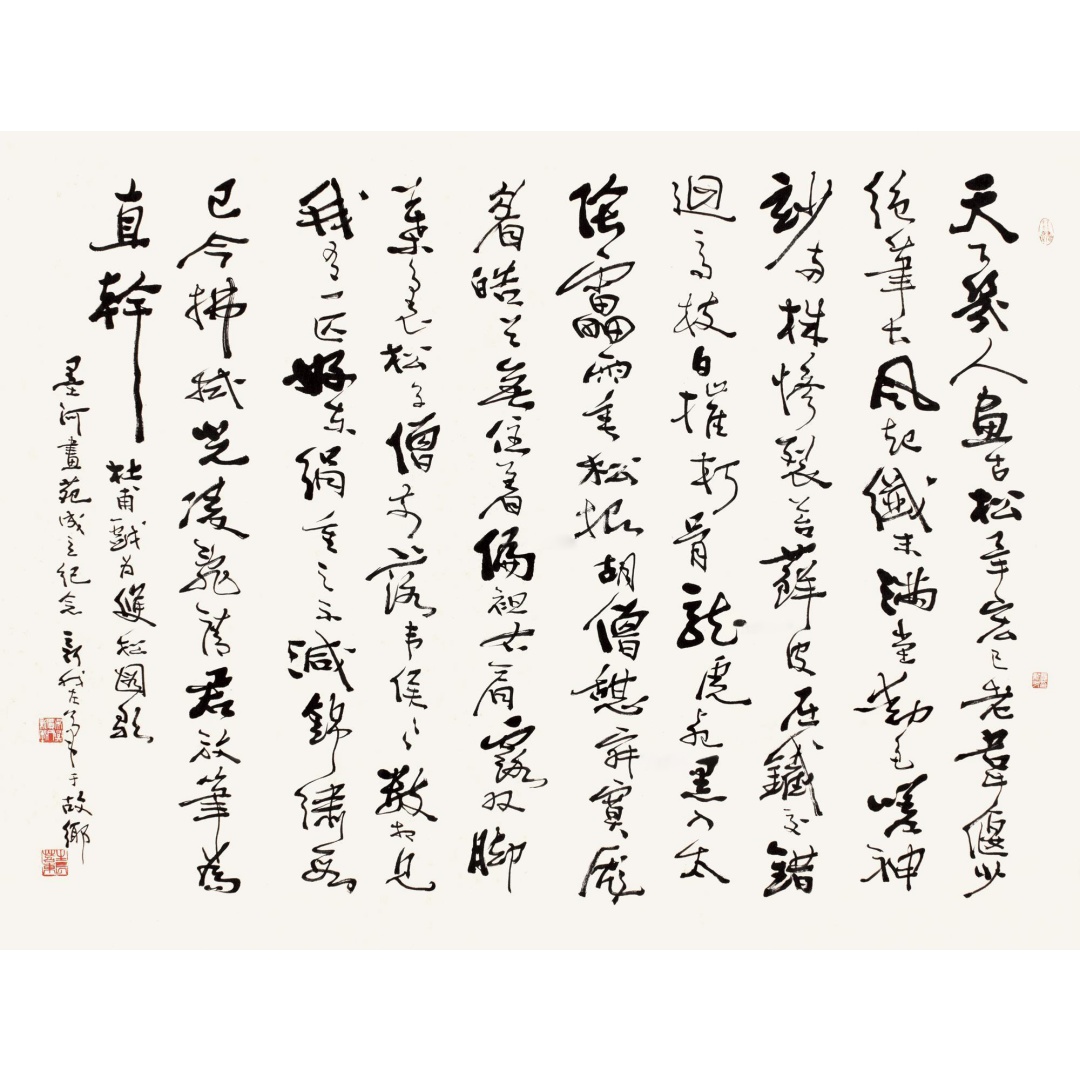 天下幾人画古松畢宏已老韋偃少
絕筆長風起纖末滿堂動色嗟神
妙兩株惨裂苔蘚皮屈鐵交錯
迴高枝白摧朽骨龍虎死黑入太
陰雷雨垂松根胡僧憩寂寞龐
眉皓首無住著偏袒右肩露双脚
葉裏松子僧前落韋侯々數相見
我有一匹好東絹重之不減錦繡段
已令拂拭光凌亂請君放筆為
直幹
杜甫戲为雙松圖歌
墨河畫苑成立紀念 于故鄉